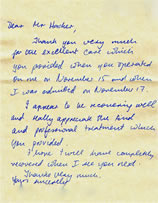 Dear Mr Hooker,
Thank you very much
for the excellent care which
you provided when you operated
on me on November 15 and when
I was admitted on November 17.
I appear to be recovering well
and really appreciate the kind
and professional treatment which
you provided.
I hope I will have completely
recovered when I see you next.
Thanks very much.
Yours sincerely